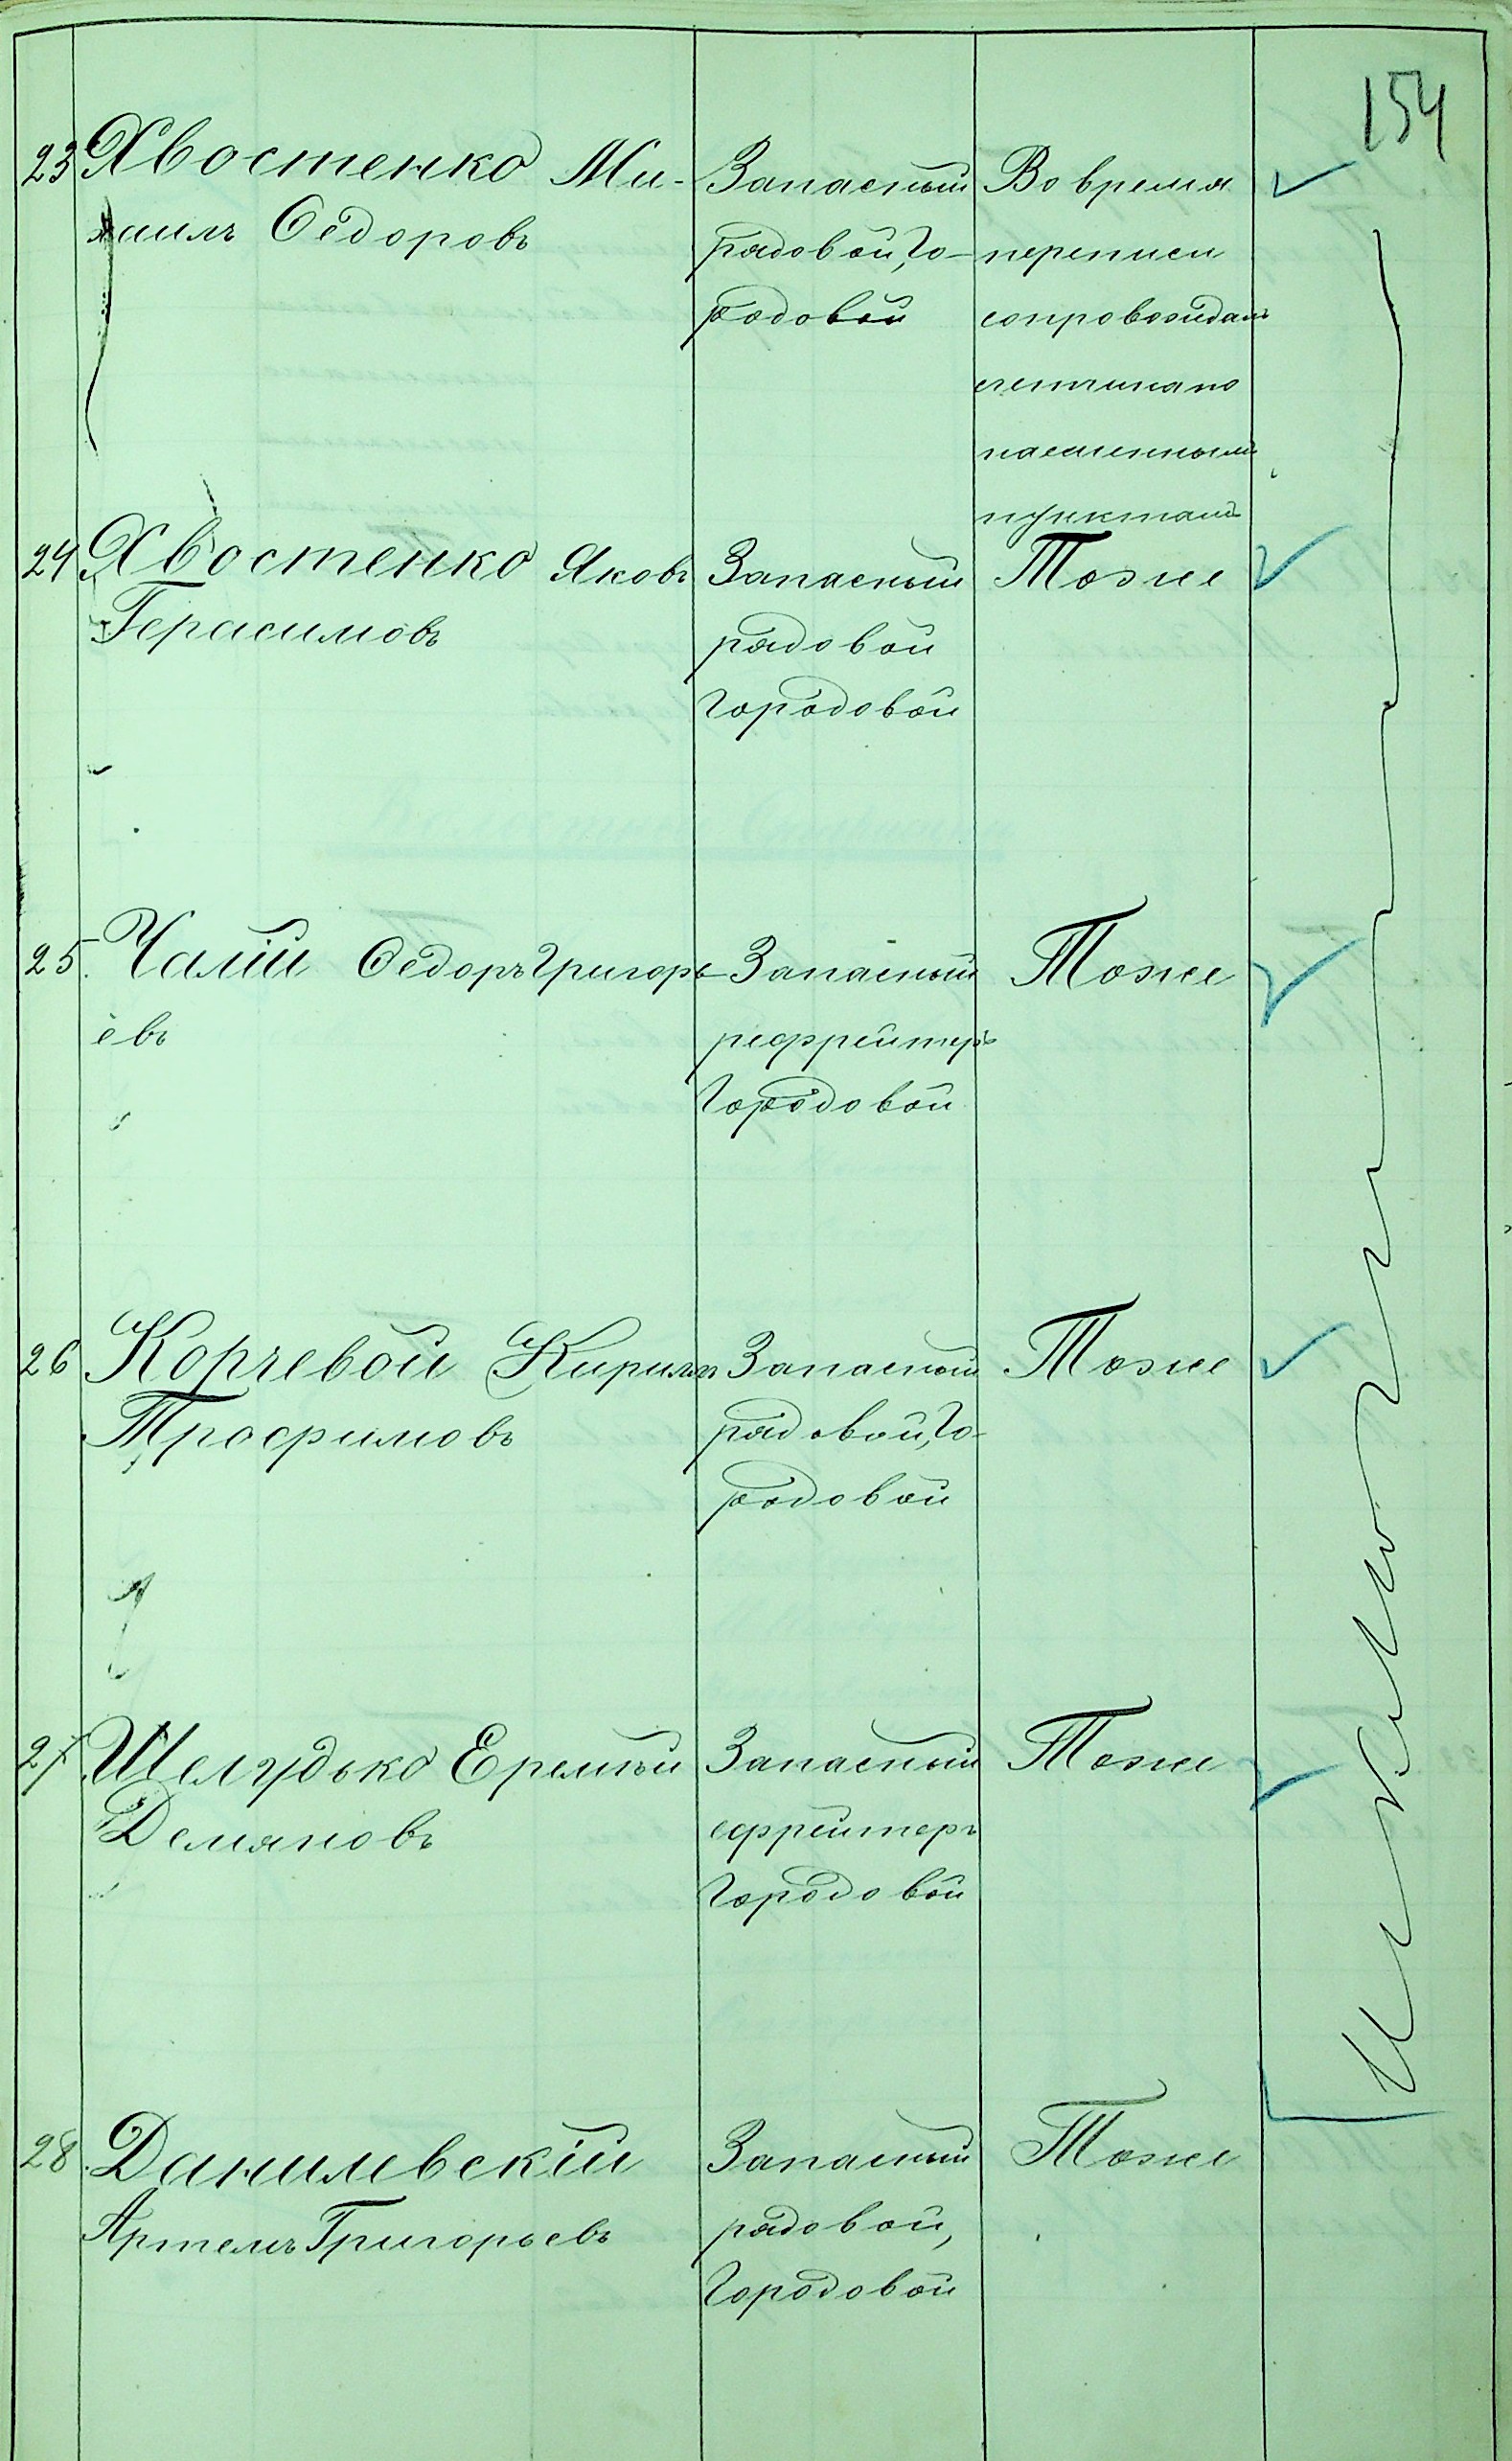 154
23 Хвостенко Ми-
хаилъ Ѳедоровъ
Запасный
рядовой, го-
родовой
Во время
переписи
сопровождалъ
счетчика по
населеннымъ
пунктамъ
24 Хвостенко Яковъ
Герасимовъ
Запасный
рядовой
городовой
Тоже
25. Чалій Ѳедоръ Григорь-
евъ
Запасный
ефрейторъ
городовой
Тоже
26 Корчевой Кирилъ
Трофимовъ
Запасный
рядовой, го-
родовой
Тоже
27 Шелудько Еремѣй
Демяновъ
Запасный
ефрейторъ
городовой
Тоже
28. Данилевскій
Артемъ Григорьевъ
Запасный
рядовой,
городовой
Тоже